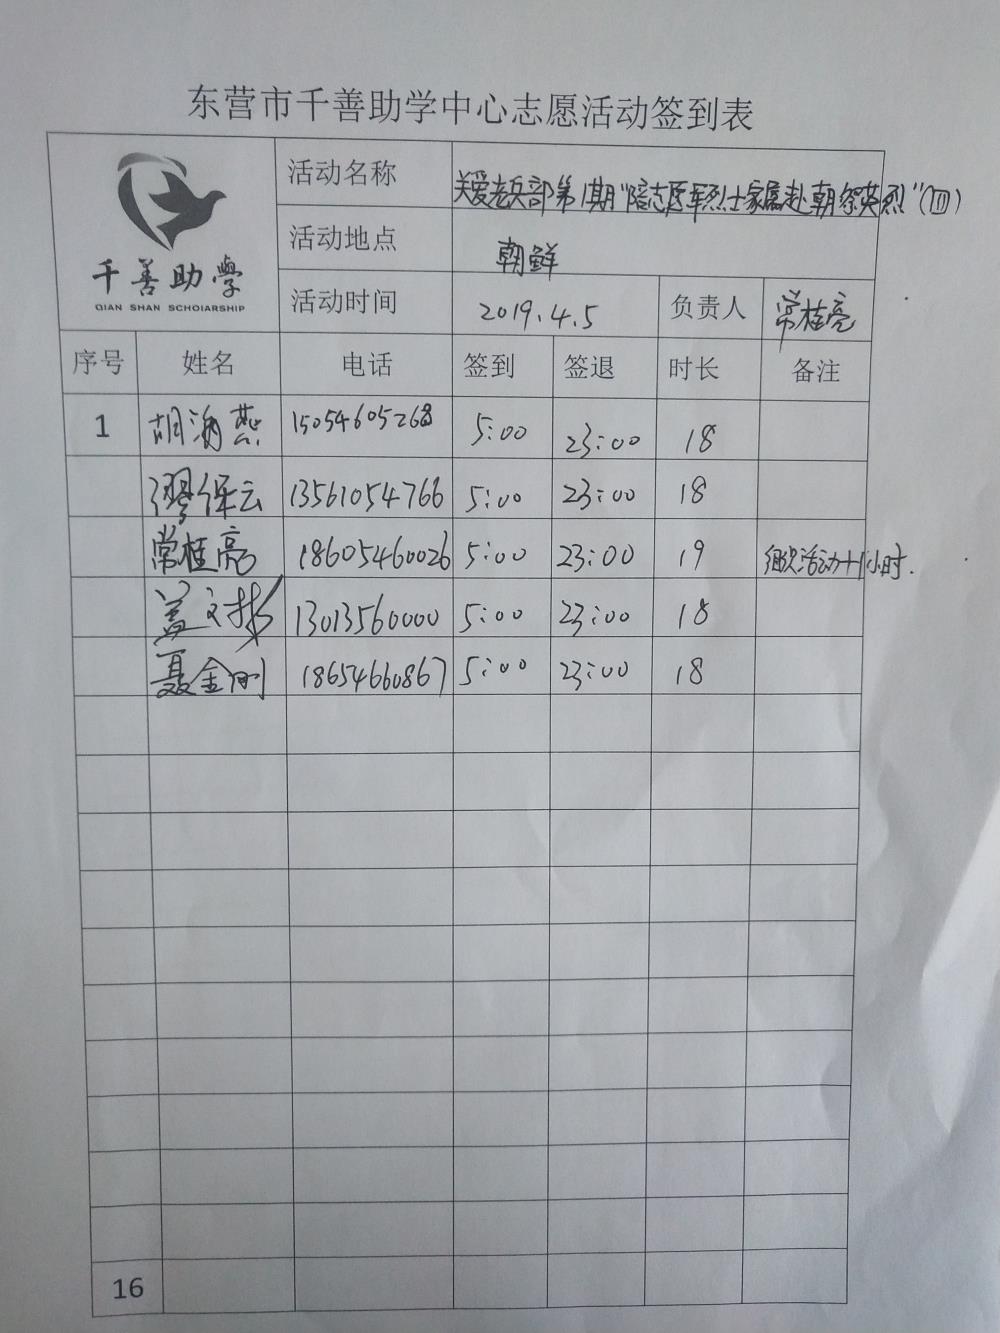 东营市千善助学中心志愿活动签到表
千善助學
QIAN SHAN SCHOlARSHIP
活动名称 关爱老兵部第1期“陪志愿军烈士家属赴朝祭英烈”(四)
活动地点 朝鲜
活动时间 2019.4.5 负责人 常桂亮
序号 姓名 电话 签到 签退 时长 备注
1 胡海燕 15054605268 5:00 23:00 18
缪保云 13561054766 5:00 23:00 18
常桂亮 18605460026 5:00 23:00 19 组织活动+1小时.
盖文彬 13013560000 5:00 23:00 18
聂金刚 18654660867 5:00 23:00 18
16